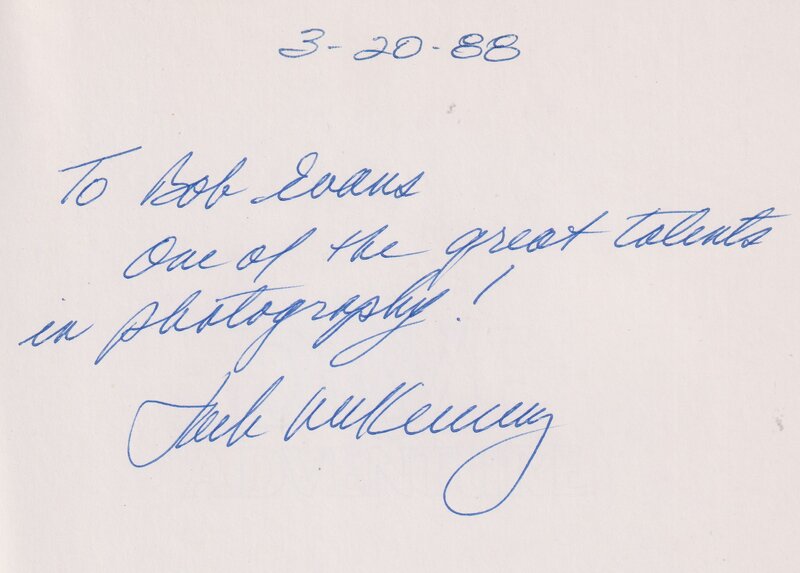 3-20-88
To Bob Evans
One of the great talents
in photography!
Jack McKenney